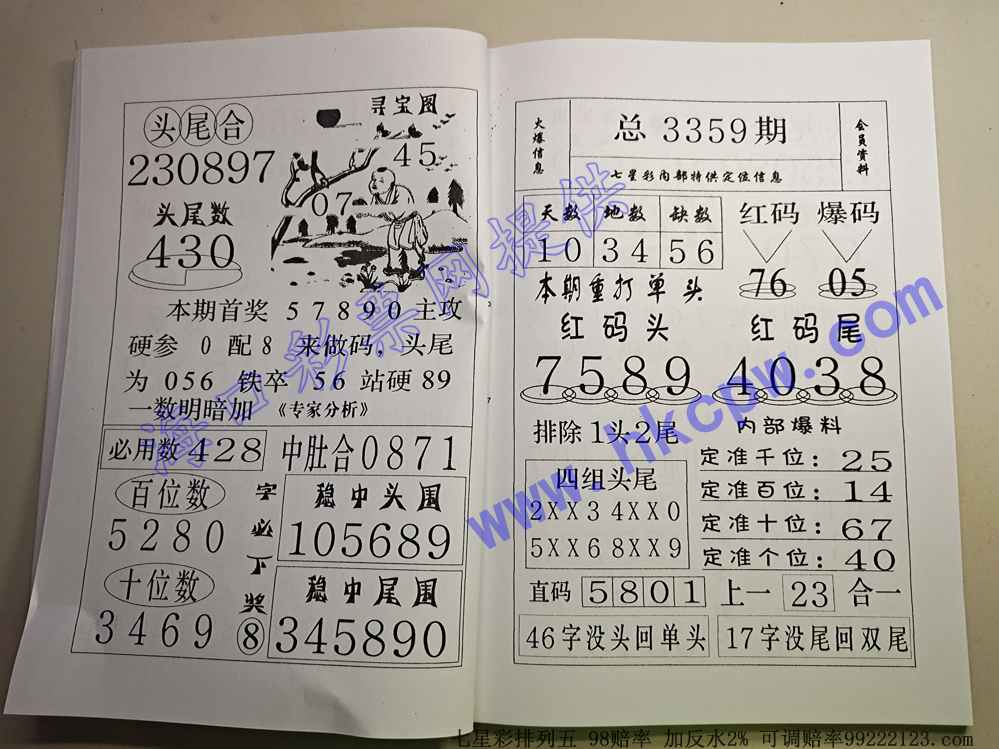 头尾合
230897
头尾数
430
寻宝图
45
07
本期首奖 5 7 8 9 0 主攻
硬参 0 配 8 来做码，头尾
为 056 铁卒 56 站硬 89
一数明暗加 《专家分析》
必用数 428
中肚合0871
百位数
5280
十位数
3469
字必下奖
8
稳中头围
105689
稳中尾围
345890
火爆信息
总 3359 期
七星彩内部特供定位信息
会员资料
天数 地数 缺数
10 34 56
红码 爆码
76 05
本期重打单头
红码头
7589
红码尾
4038
排除1头2尾
内部爆料
四组头尾
2XX3 4XX0
5XX6 8XX9
定准千位：25
定准百位：14
定准十位：67
定准个位：40
直码 5801 上一 23 合一
46字没头回单头
17字没尾回双尾
海口彩票网提供
www.hkcpw.com
七星彩排列五 98赔率 加反水2% 可调赔率99222123.com